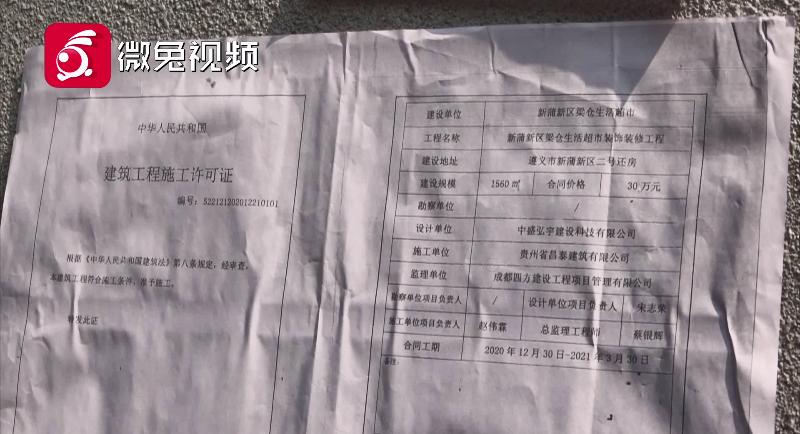 微兔视频
中华人民共和国
建筑工程施工许可证
编号：522121202012210101
根据《中华人民共和国建筑法》第八条规定，经审查，
本建筑工程符合施工条件，准予施工。
特发此证
建设单位 新蒲新区梁仓生活超市
工程名称 新蒲新区梁仓生活超市装饰装修工程
建设地址 遵义市新蒲新区二号还房
建设规模 1560㎡ 合同价格 30万元
勘察单位 /
设计单位 中盛弘宇建设科技有限公司
施工单位 贵州省昌泰建筑有限公司
监理单位 成都四方建设工程项目管理有限公司
勘察单位项目负责人 / 设计单位项目负责人 宋志荣
施工单位项目负责人 赵伟霖 总监理工程师 蔡银辉
合同工期 2020年12月30日-2021年3月30日
备注：